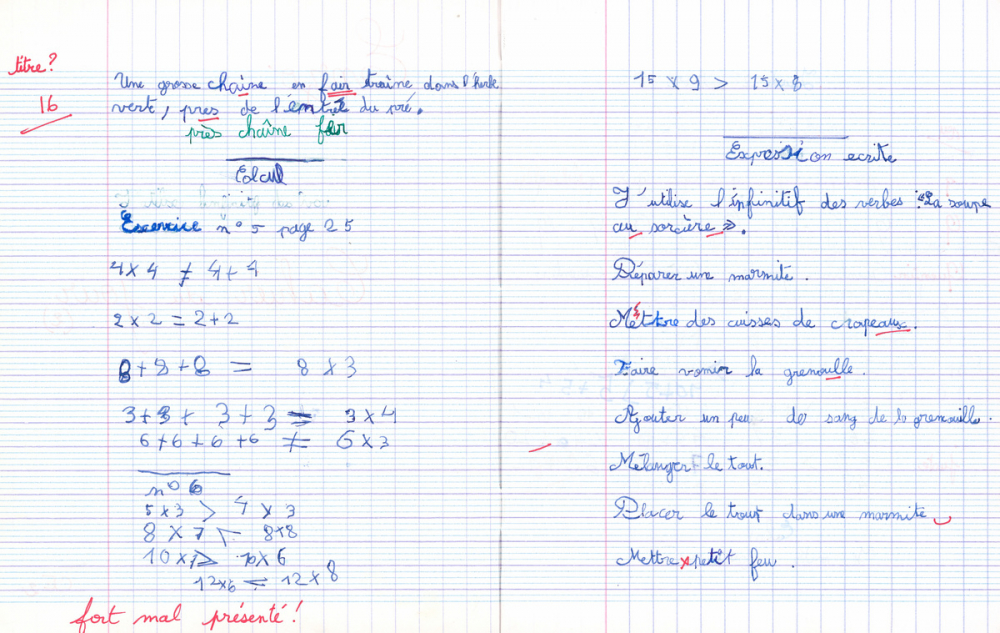 titre?
16
Une grosse chaîne en fair traîne dans l'herbe
vert, pres de l'entré du pré.
près chaîne fer
Calcul
Excercice n° 5 page 25
4 x 4 ≠ 4 + 4
2 x 2 = 2 + 2
8 + 8 + 8 = 8 x 3
3 + 3 + 3 + 3 = 3 x 4
6 + 6 + 6 + 6 ≠ 6 x 3
n° 6
5 x 3 > 4 x 3
8 x 7 < 8 x 8
10 x 7 > 10 x 6
12 x 6 < 12 x 8
fort mal présenté !
15 x 9 > 15 x 8
Expression ecrite
J'utilise l'infinitif des verbes : "La soupe
au sorcière ».
Préparer une marmite.
Mettre des cuisses de crapeaux.
Faire vomir la grenouille.
Ajouter un peu de sang de la grenouille.
Mélanger le tout.
Placer le tout dans une marmite
Mettre petit feu.